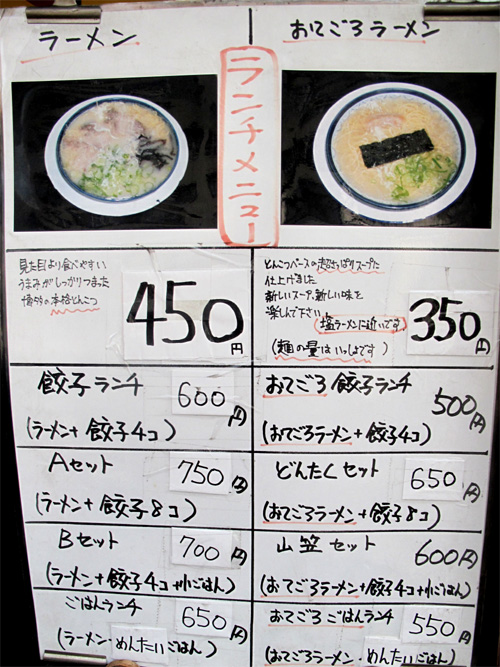 ラーメン
おてごろラーメン
ランチメニュー
見た目より食べやすい
うまみがしっかりつまった
博多の本格とんこつ
450円
とんこつベースの超さっぱりスープに
仕上げました
新しいスープ、新しい味を
楽しんで下さい
(塩ラーメンに近いです)
(麺の量はいっしょです)
350円
餃子ランチ 600円
(ラーメン+餃子4コ)
おてごろ餃子ランチ 500円
(おてごろラーメン+餃子4コ)
Aセット 750円
(ラーメン+餃子8コ)
どんたくセット 650円
(おてごろラーメン+餃子8コ)
Bセット 700円
(ラーメン+餃子4コ+小ごはん)
山笠セット 600円
(おてごろラーメン+餃子4コ+小ごはん)
ごはんランチ 650円
(ラーメン・めんたいごはん)
おてごろごはんランチ 550円
(おてごろラーメン・めんたいごはん)